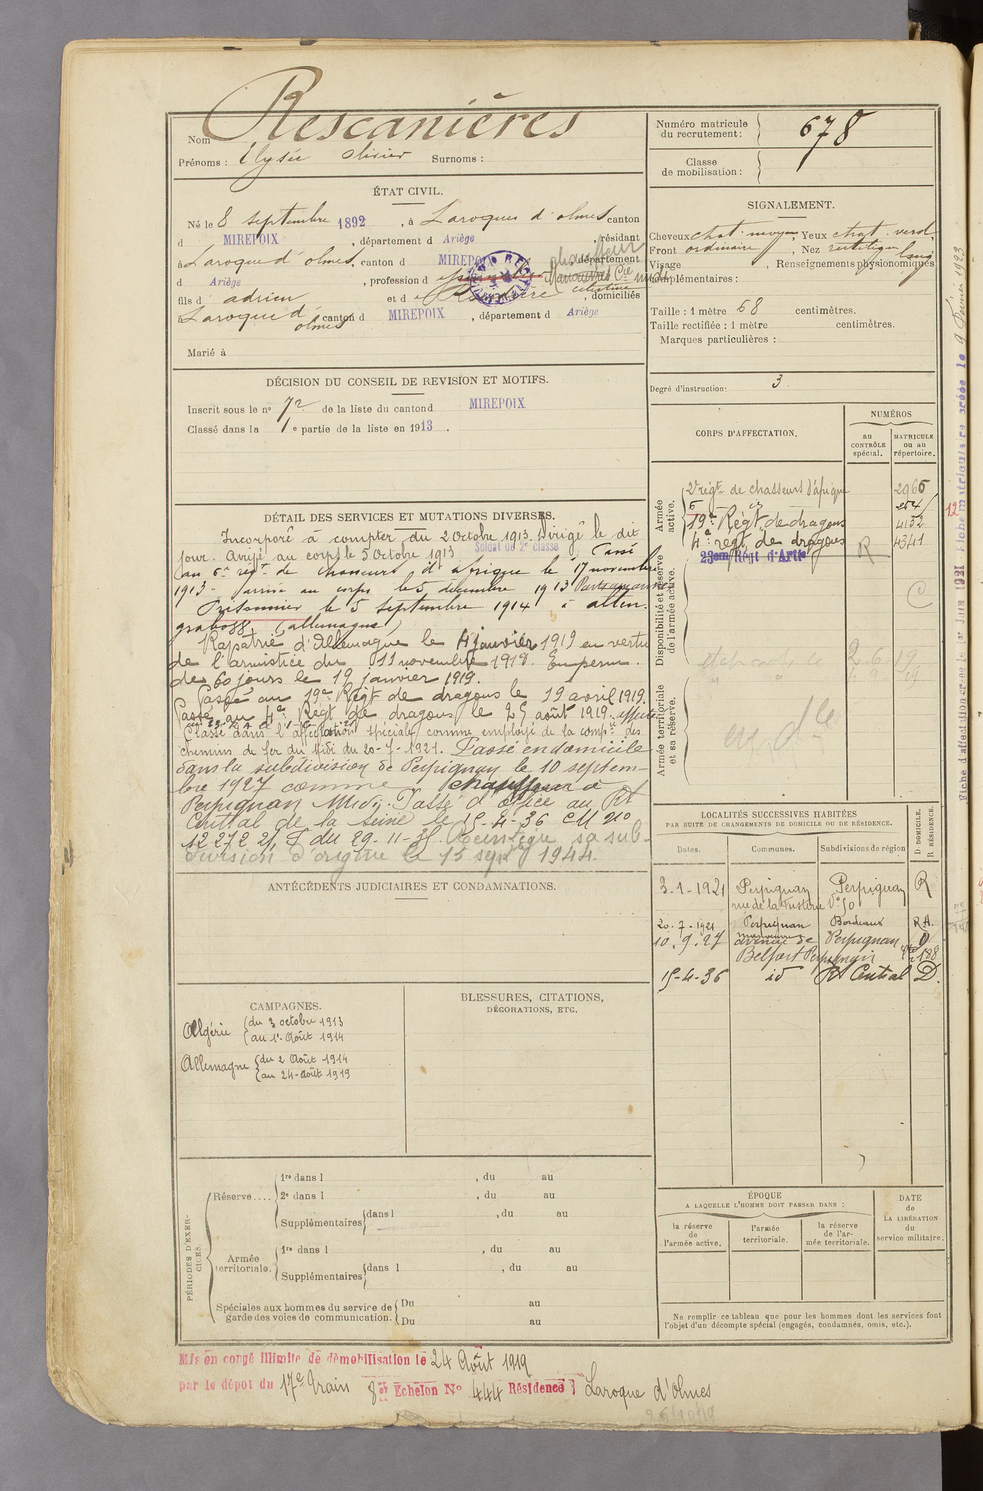 Rescanières
Nom
Prénoms : Elysée Olivier Surnoms :
Numéro matricule du recrutement : 678
Classe de mobilisation :
ÉTAT CIVIL.
Né le 8 septembre 1892, à Laroques d'olmes canton
d MIREPOIX, département d Ariège, résidant
à Laroque d'olmes, canton d MIREPOIX département
d Ariège, profession d chauffeur Cie midi
fils d adrien et d celestine, domiciliés
à Laroque d olmes canton d MIREPOIX, département d Ariège
Marié à
SIGNALEMENT.
Cheveux chat. moyen, Yeux chat. verd.
Front ordinaire, Nez rectiligne
Visage long, Renseignements physionomiques
complémentaires :
Taille : 1 mètre 68 centimètres.
Taille rectifiée : 1 mètre centimètres.
Marques particulières :
Degré d'instruction : 3
DÉCISION DU CONSEIL DE REVISION ET MOTIFS.
Inscrit sous le n° 72 de la liste du canton d MIREPOIX
Classé dans la 1e partie de la liste en 1913.
DÉTAIL DES SERVICES ET MUTATIONS DIVERSES.
Incorporé à compter du 2 Octobre 1913. Dirigé le dit
jour. Arrivé au corps le 5 Octobre 1913 Soldat de 2e classe Passé
au 6e régt de chasseurs d'afrique le 17 novembre
1913 - arrivé au corps le 5 décembre 1913
Prisonnier le 5 septembre 1914 à alten
grabow (allemagne)
Rapatrié d'Allemagne le 4 janvier 1919 en vertu
de l'armistice du 11 novembre 1918. En perm.
de 60 jours le 19 janvier 1919.
Passé au 19e Régt de dragons le 19 avril 1919.
Passé au 4e Régt de dragons le 25 août 1919.
Classé dans l'affectation spéciale comme employé de la compie des
chemins de fer du Midi du 20-7-1921. Passé en domicile
dans la subdivision de Perpignan le 10 septem-
bre 1927 comme chauffeur à
Perpignan Midi. Passé d'office au Rt
Central de la Seine le 15-4-36 CM n°
12 272 2/1 T du 29-11-35. Réintègre sa sub-
division d'origine le 15 sept 1944.
CORPS D'AFFECTATION.
NUMÉROS
au CONTRÔLE spécial.
MATRICULE ou au répertoire.
Armée active.
2e régt de chasseurs d'afrique 2966
6 254
19e Régt de dragons 4132
4e régt de dragons R 4341
23em Régt d'Artie
Disponibilité et réserve de l'armée active.
Armée territoriale et sa réserve.
LOCALITÉS SUCCESSIVES HABITÉES
PAR SUITE DE CHANGEMENTS DE DOMICILE OU DE RÉSIDENCE.
Dates. Communes. Subdivisions de région D. DOMICILE. R. RÉSIDENCE.
3-1-1921 Perpignan Perpignan R
rue de la Fusterie N° 50
20-7-1921 Perpignan Bordeaux R.A.
10.9.27 avenue de Perpignan D
Belfort Perpignan 188
15-4-36 id Rt Central D.
ANTÉCÉDENTS JUDICIAIRES ET CONDAMNATIONS.
CAMPAGNES.
Algérie du 3 octobre 1913
au 1er Août 1914
Allemagne du 2 Août 1914
au 24 Août 1919
BLESSURES, CITATIONS,
DÉCORATIONS, ETC.
PÉRIODES D'EXERCICES.
Réserve....
1re dans l , du au
2e dans l , du au
Supplémentaires dans l , du au
Armée territoriale.
1re dans l , du au
Supplémentaires dans l , du au
Spéciales aux hommes du service de garde des voies de communication.
Du au
Du au
ÉPOQUE
A LAQUELLE L'HOMME DOIT PASSER DANS :
la réserve de l'armée active.
l'armée territoriale.
la réserve de l'armée territoriale.
DATE de LA LIBÉRATION du service militaire.
Ne remplir ce tableau que pour les hommes dont les services font
l'objet d'un décompte spécial (engagés, condamnés, omis, etc.).
Mis en congé illimité de démobilisation le 24 Août 1919
par le dépôt du 17e Train 8er Echelon N° 444 Résidence : Laroque d'Olmes